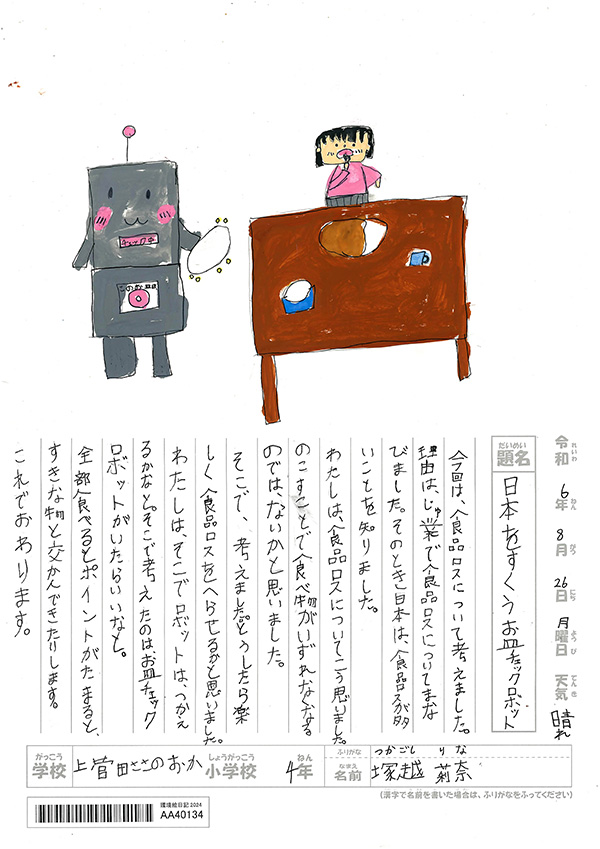 チェック中
令和6年8月26日月曜日 天気 晴れ
れいわ ねん がつ にち ようび てんき
だいめい
題名
日本をすくうお皿チェックロボット
今回は、食品ロスについて考えました。
理由は、じゅ業で食品ロスについてまな
びました。そのとき日本は、食品ロスが多
いことを知りました。
わたしは、食品ロスについてこう思いました。
のこすことで食べ物がいずれなくなる
のでは、ないかと思いました。
そこで、考えました。どうしたら楽
しく食品ロスをへらせるかと思いました。
わたしは、そこでロボットは、つかえ
るかなと。そこで考えたのは、お皿チェック
ロボットがいたらいいなと。
全部食べるとポイントがたまると、
すきな物と交かんできたりします。
これでおわります。
がっこう しょうがっこう ねん
学校 上菅田ささのおか小学校 4年
ふりがな つかごし りな
なまえ
名前 塚越 莉奈
(漢字で名前を書いた場合は、ふりがなをふってください)
環境絵日記2024
AA40134